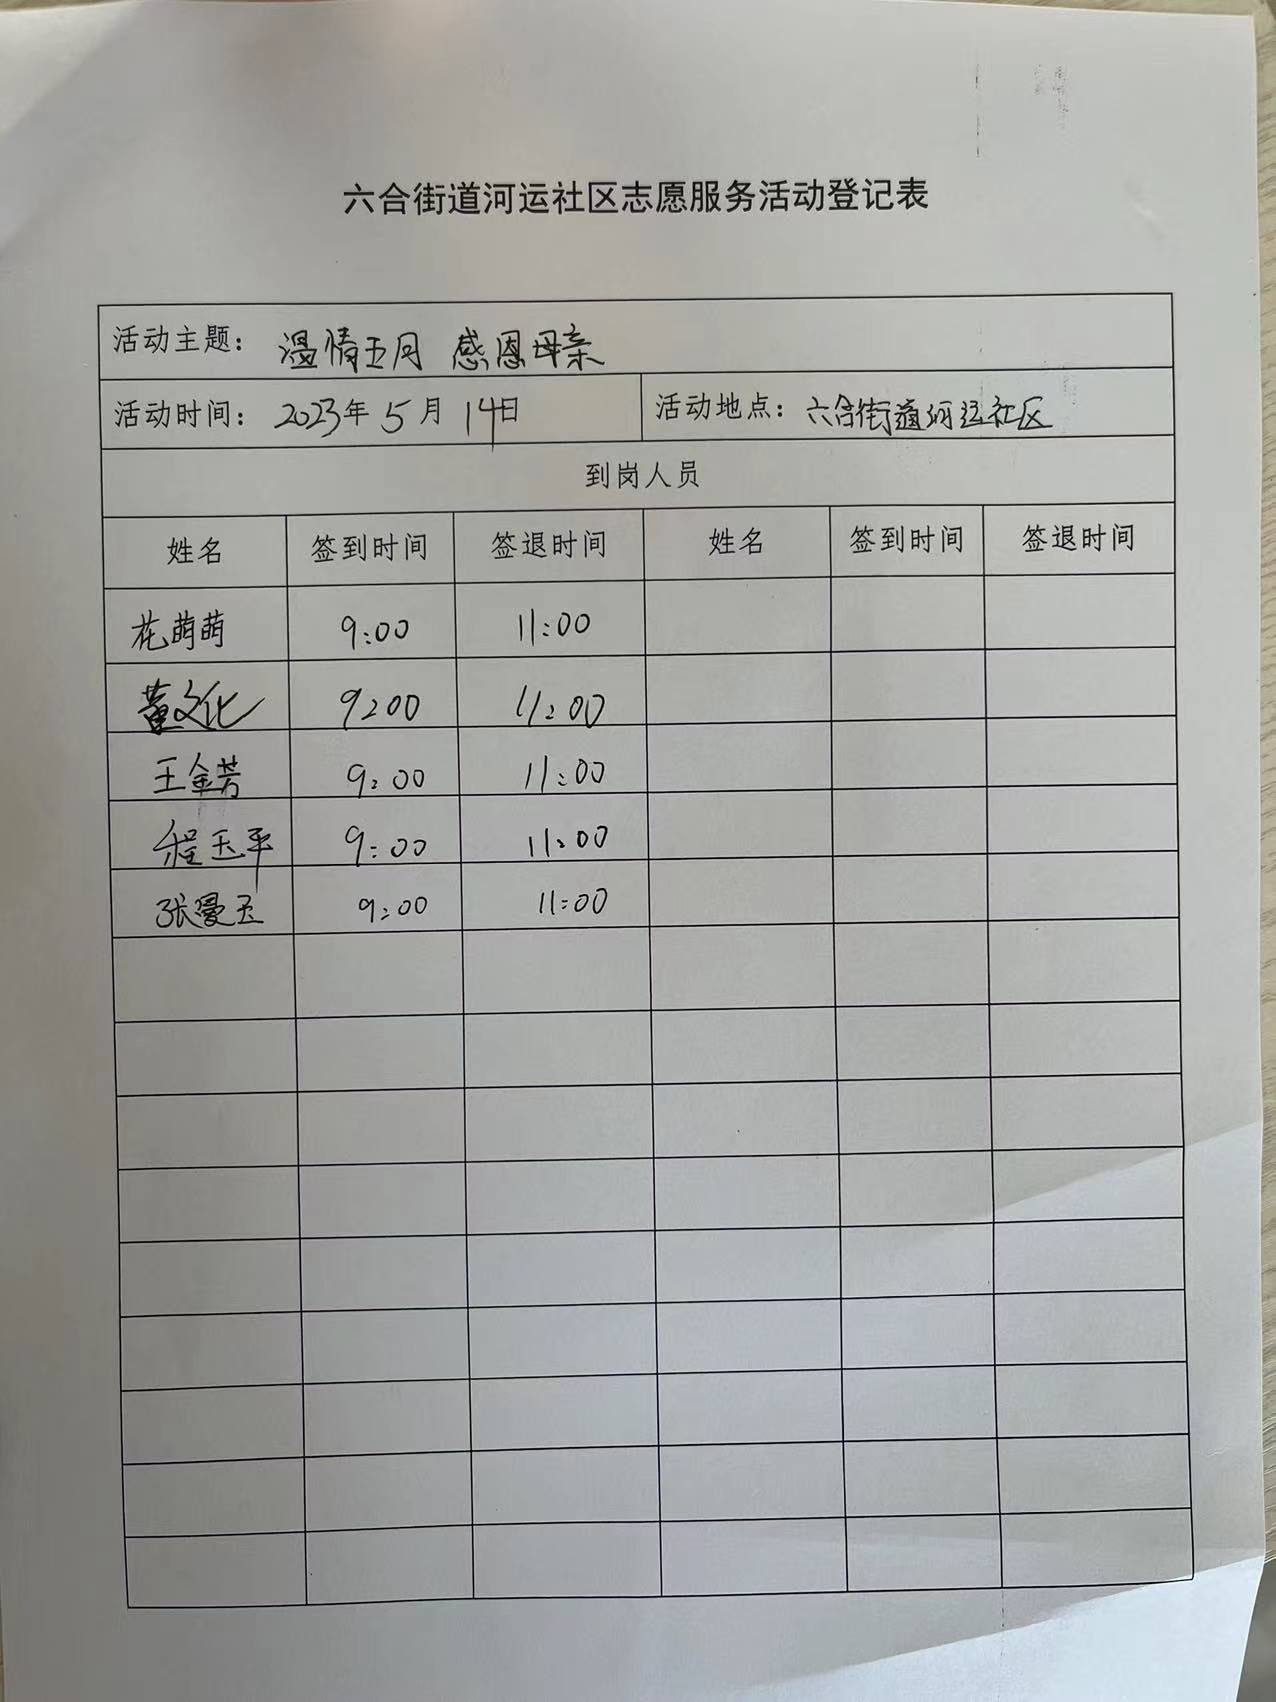 六合街道河运社区志愿服务活动登记表
活动主题：温情五月 感恩母亲
活动时间：2023年5月14日 活动地点：六合街道河运社区
到岗人员
姓名 签到时间 签退时间 姓名 签到时间 签退时间
花萌萌 9:00 11:00
董文化 9:00 11:00
王金芳 9:00 11:00
程玉平 9:00 11:00
张曼玉 9:00 11:00